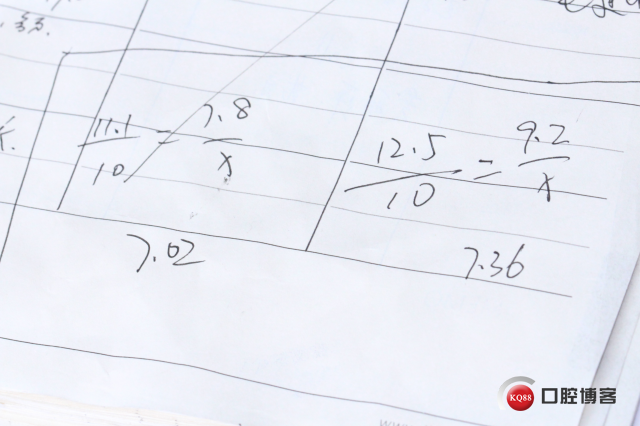 11.1/10 = 7.8/x
7.02
12.5/10 = 9.2/x
7.36
KQ88 口腔博客